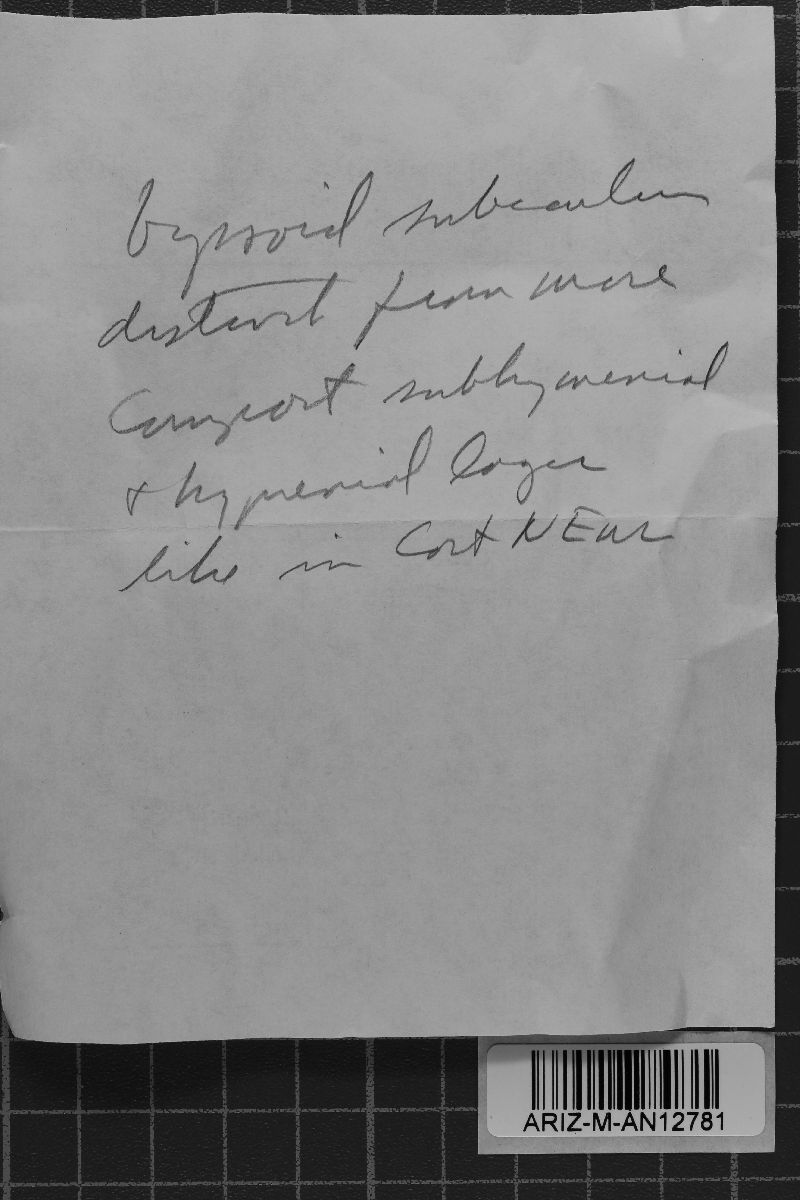 byssoid subiculum
distinct from more
compact subhymenial
+ hymenial layer
like in Cort N Eur
ARIZ-M-AN12781